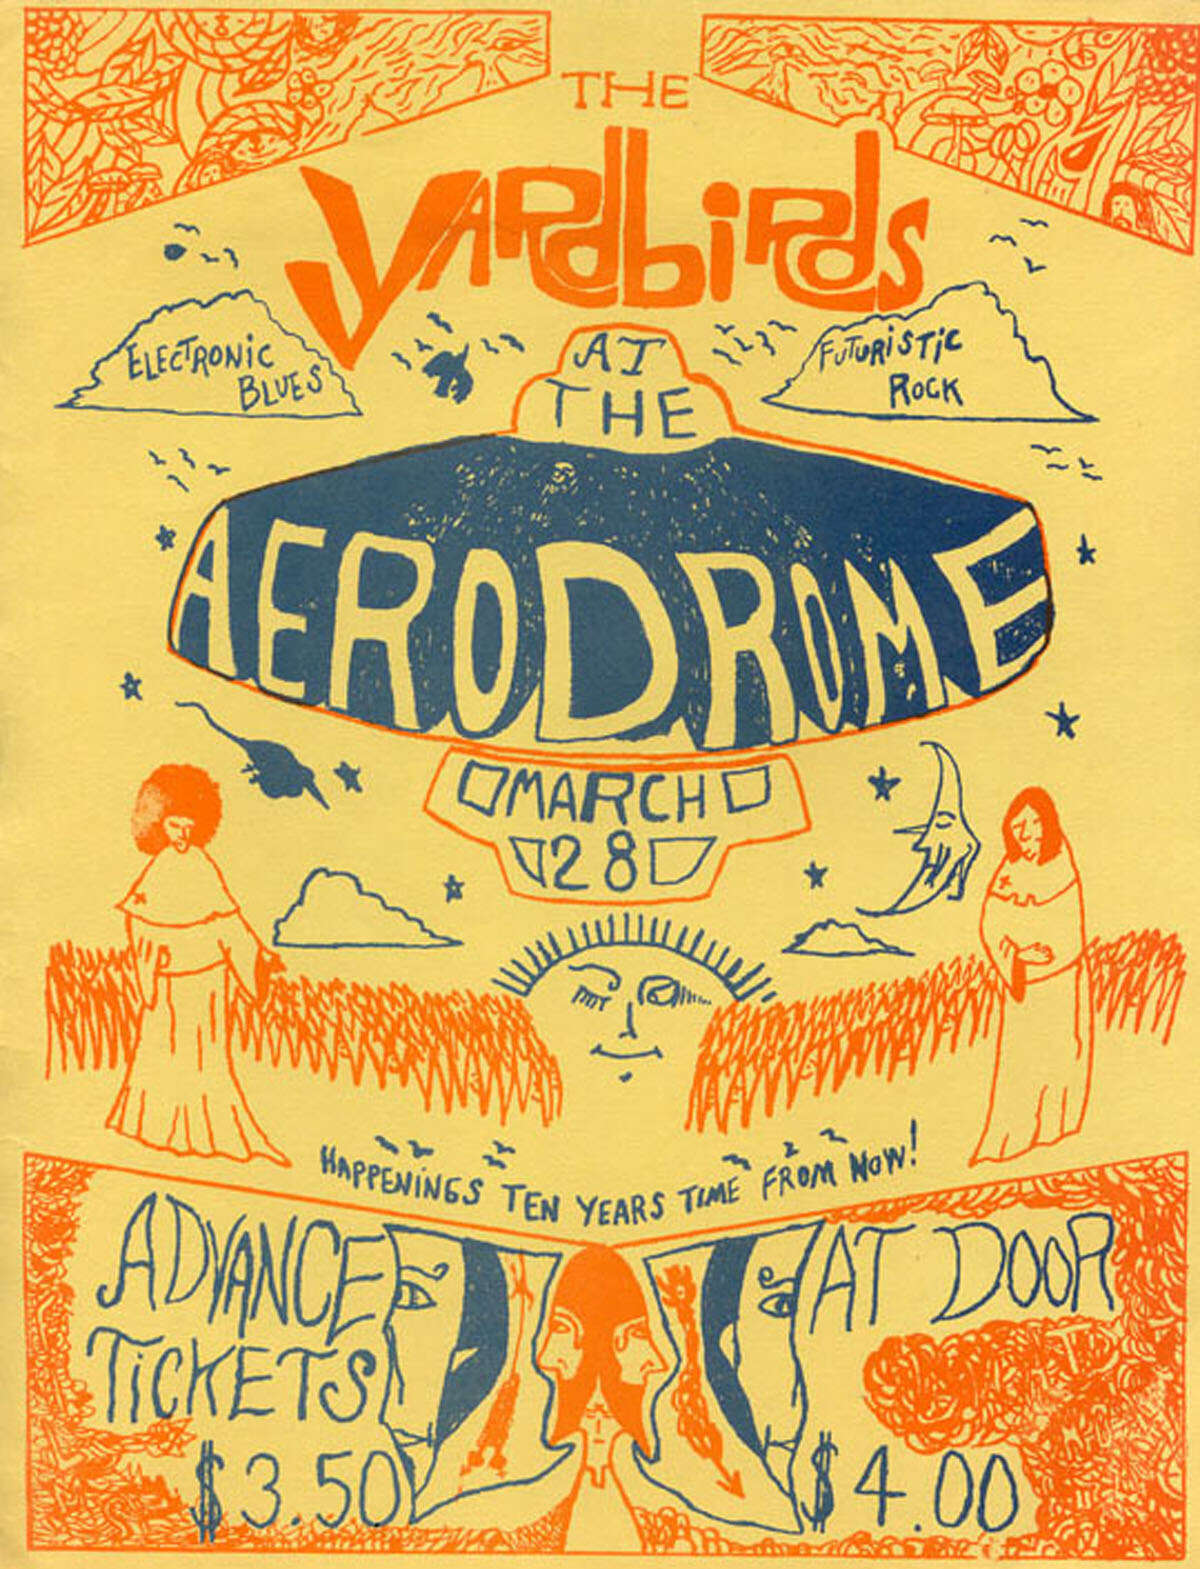 THE
YARDbiRds
ELECTRONIC
BLUES
FUTURISTIC
ROCK
AT
THE
AERODROME
MARCH
28
HAPPENINGS TEN YEARS TIME FROM NOW!
ADVANCE
TICKETS
$3.50
AT DOOR
$4.00